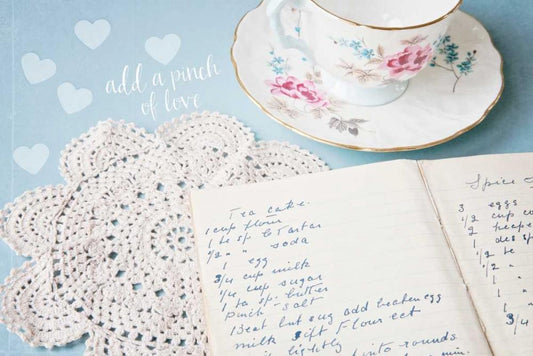 add a pinch
of love
Tea cake.
1 cup flour
1 te sp b Tartar
1/2 " " soda
1 egg
3/4 cup milk
1/4 cup sugar
1 ta sp. butter
Pinch salt
Beat but sug add beaten egg
milk sift Flour ect
lightly
into rounds
Spice
3 eggs
1/2 cup
2
1 des sp
1/2 te
1/4 "